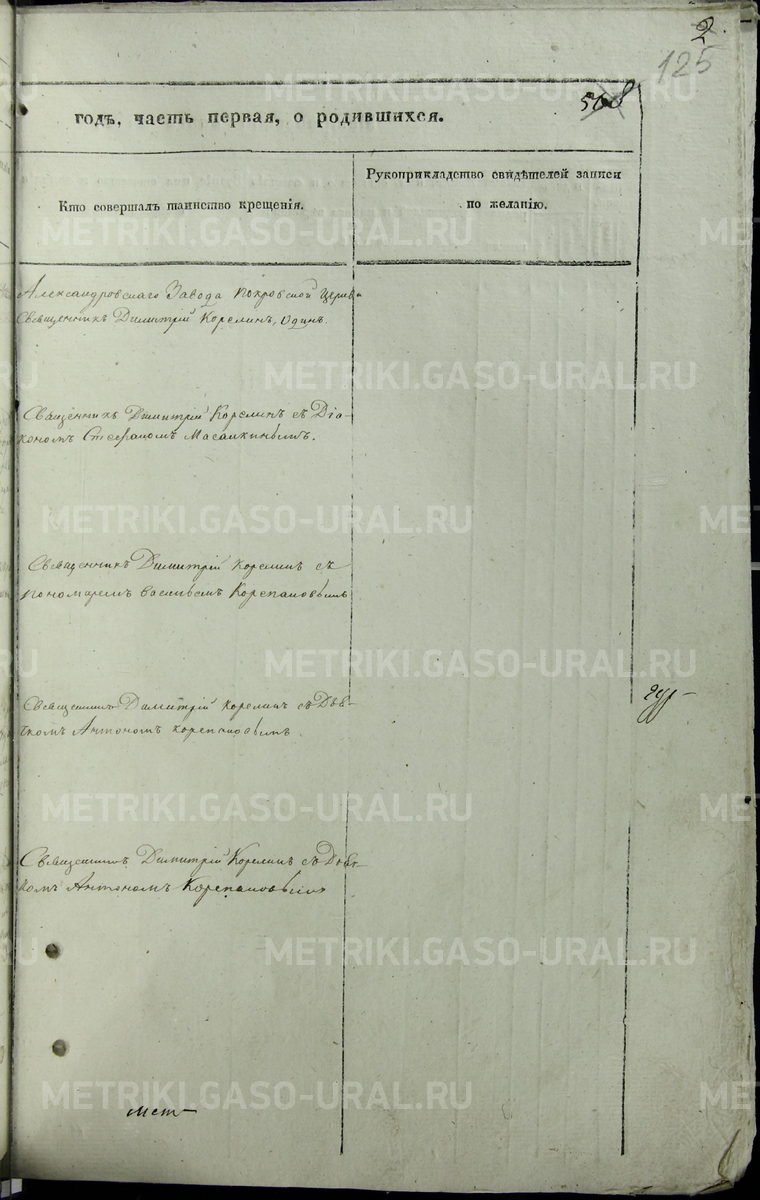 2.
125
568
годъ, часть первая, о родившихся.
Кто совершалъ таинство крещенія.
Рукоприкладство свидѣтелей записи
по желанію.
Александровскаго Завода Покровской Церкви
Священникъ Димитрій Корелинъ, одинъ.
Священникъ Димитрій Корелинъ съ Діа-
кономъ Стефаномъ Масалкинымъ.
Священникъ Димитрій Корелинъ съ
пономаремъ Васильемъ Корепановымъ
Священникъ Димитрій Корелинъ съ Дья-
чкомъ Антономъ Корепановымъ.
Священникъ Димитрій Корелинъ съ Дьяч-
комъ Антономъ Корепановымъ
METRIKI.GASO-URAL.RU